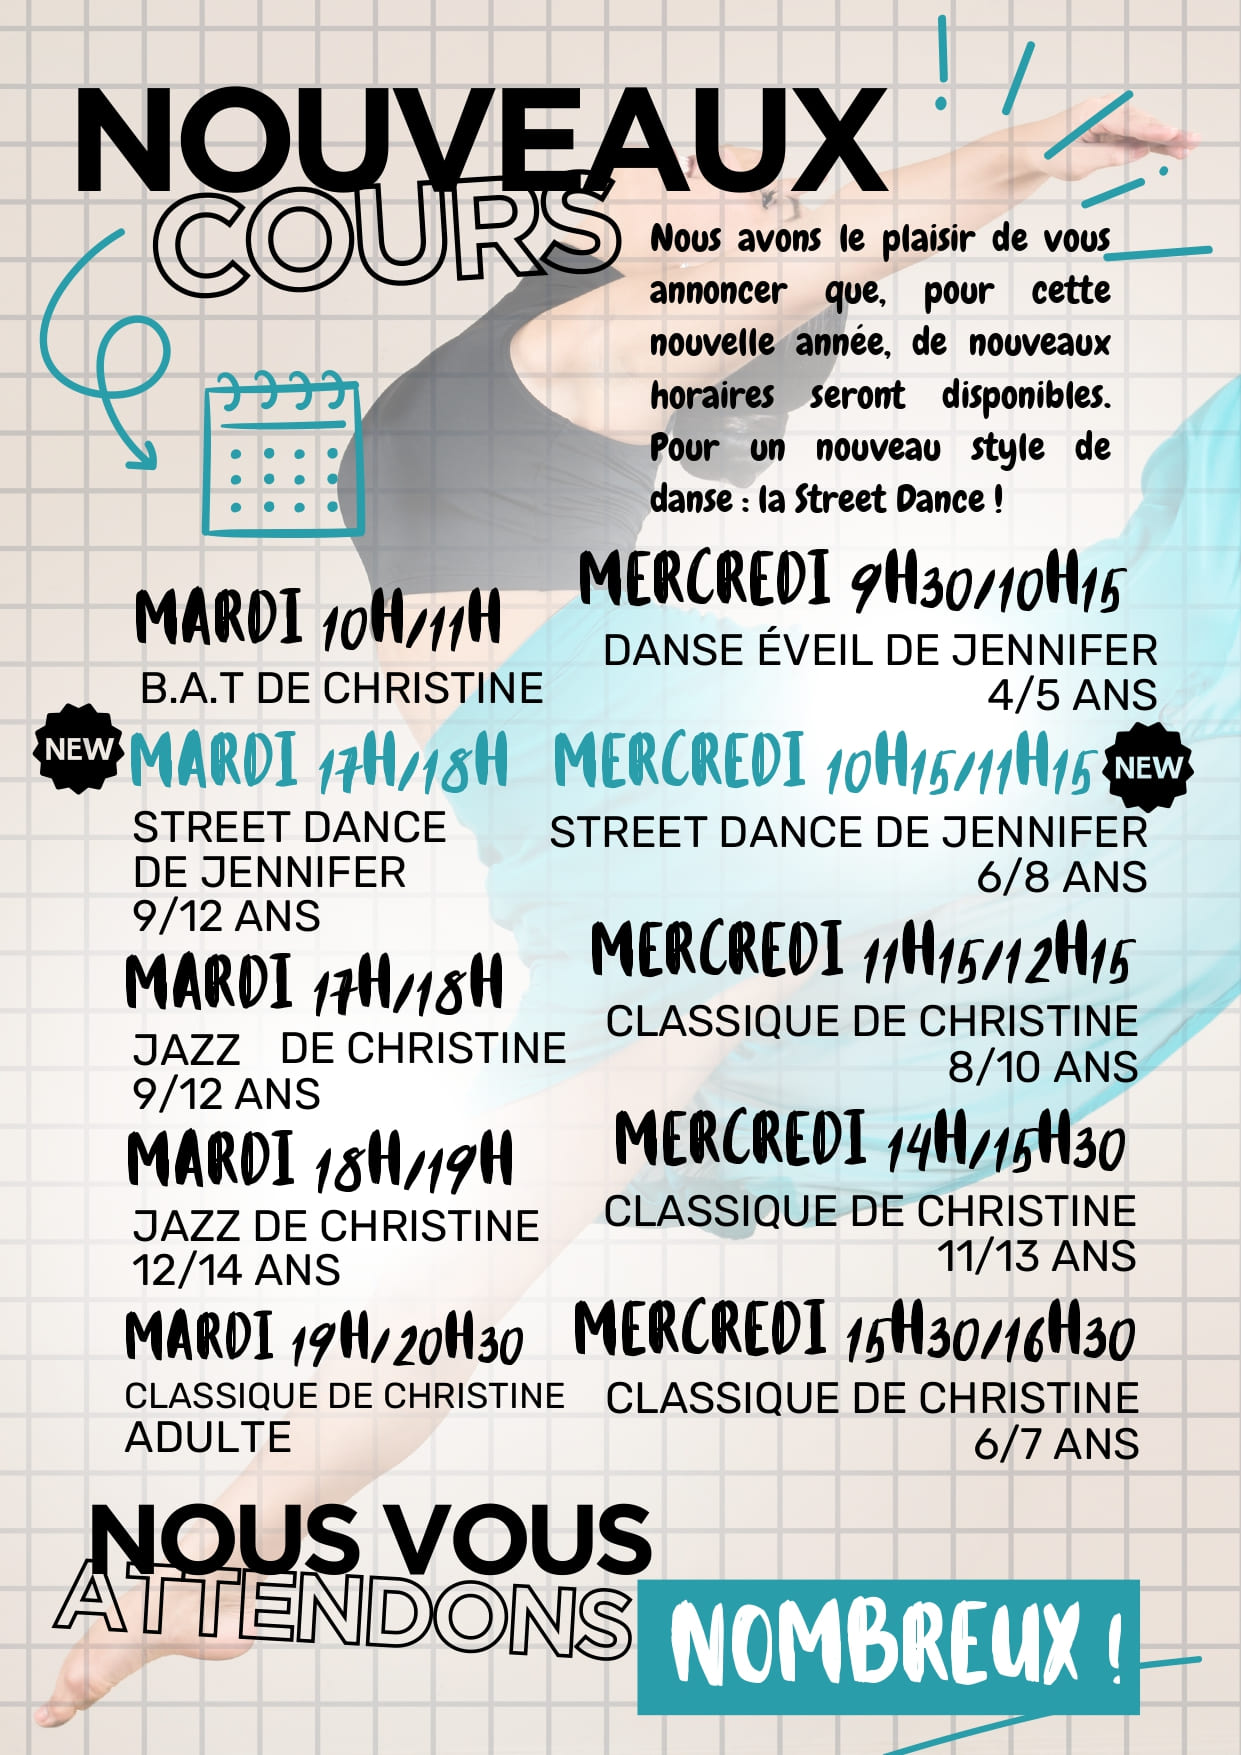 NOUVEAUX
COURS
Nous avons le plaisir de vous
annoncer que, pour cette
nouvelle année, de nouveaux
horaires seront disponibles.
Pour un nouveau style de
danse : la Street Dance !
MARDI 10H/11H
B.A.T DE CHRISTINE
NEW
MARDI 17H/18H
STREET DANCE
DE JENNIFER
9/12 ANS
MARDI 17H/18H
JAZZ DE CHRISTINE
9/12 ANS
MARDI 18H/19H
JAZZ DE CHRISTINE
12/14 ANS
MARDI 19H/20H30
CLASSIQUE DE CHRISTINE
ADULTE
MERCREDI 9H30/10H15
DANSE ÉVEIL DE JENNIFER
4/5 ANS
MERCREDI 10H15/11H15
NEW
STREET DANCE DE JENNIFER
6/8 ANS
MERCREDI 11H15/12H15
CLASSIQUE DE CHRISTINE
8/10 ANS
MERCREDI 14H/15H30
CLASSIQUE DE CHRISTINE
11/13 ANS
MERCREDI 15H30/16H30
CLASSIQUE DE CHRISTINE
6/7 ANS
NOUS VOUS
ATTENDONS
NOMBREUX !